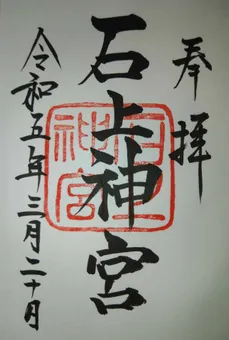 奉拝
石上神宮
令和五年三月二十月
石上神宮